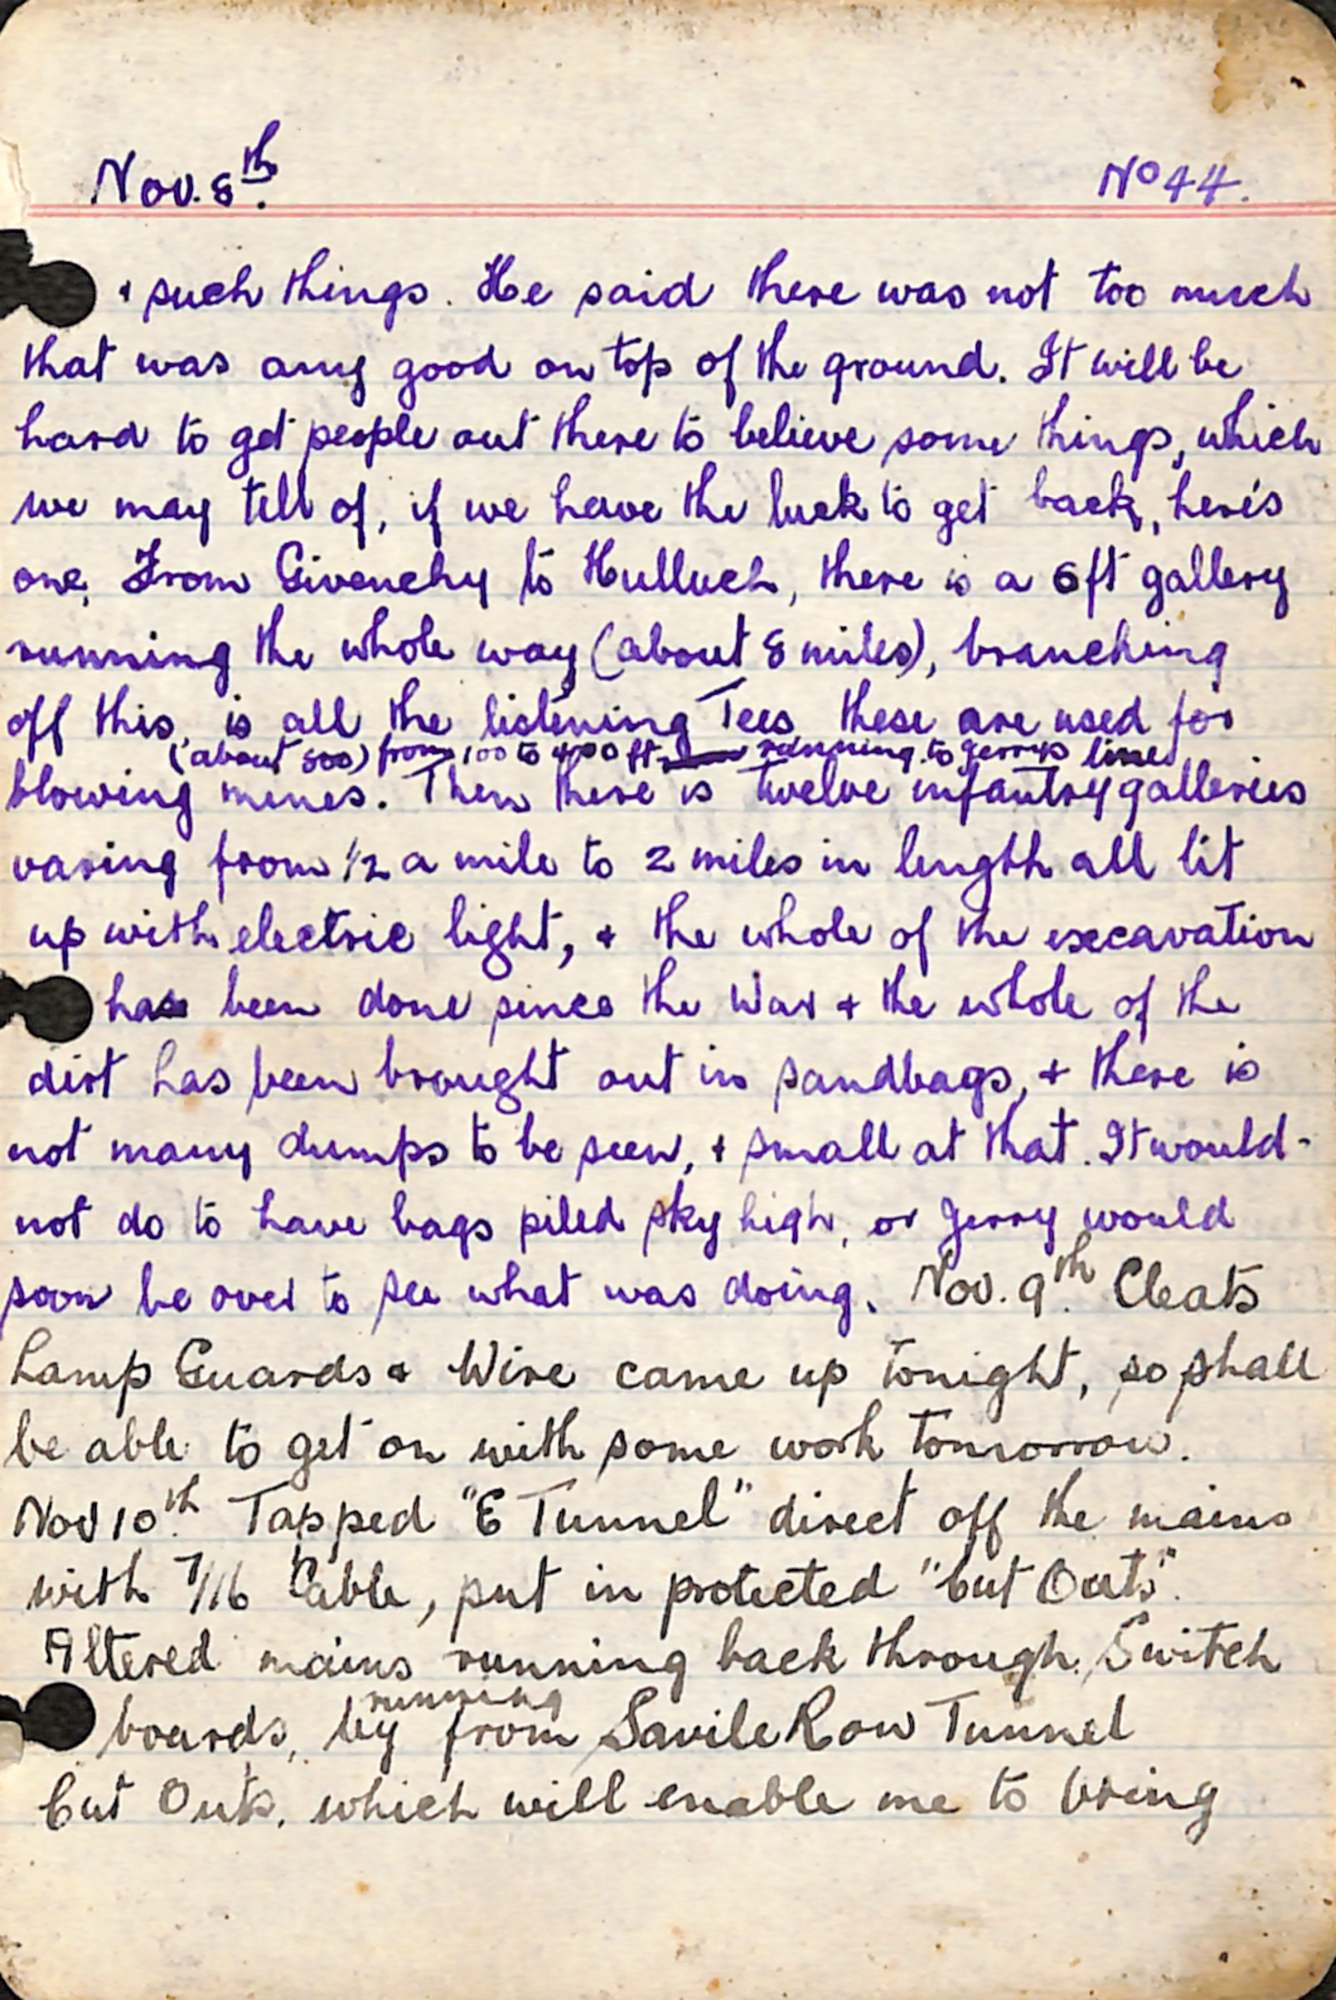 Nov. 8th. No 44.
& such things. He said there was not too much
that was any good on top of the ground. It will be
hard to get people out there to believe some things, which
we may tell of, if we have the luck to get back, here's
one, From Givenchy to Hulluch, there is a 6ft gallery
running the whole way (about 8 miles), branching
off this, is all the listening Tees, these are used for
(about 500) from 100 to 400 ft running to Jerrys lines
blowing mines. Then there is twelve infantry galleries
varing from 1/2 a mile to 2 miles in length all lit
up with electric light, & the whole of the excavation
has been done since the War & the whole of the
dirt has been brought out in sandbags, & there is
not many dumps to be seen, & small at that. It would-
not do to have bags piled sky high, or Jerry would
soon be over to see what was doing. Nov. 9th. Cleats
Lamp Guards & Wire came up tonight, so shall
be able to get on with some work tomorrow.
Nov 10th. Tapped "E Tunnel" direct off the mains
with 7/16 Cable, put in protected "Cut Outs".
Altered mains running back through Switch
running
boards, by from Savile Row Tunnel
Cut Outs, which will enable me to bring